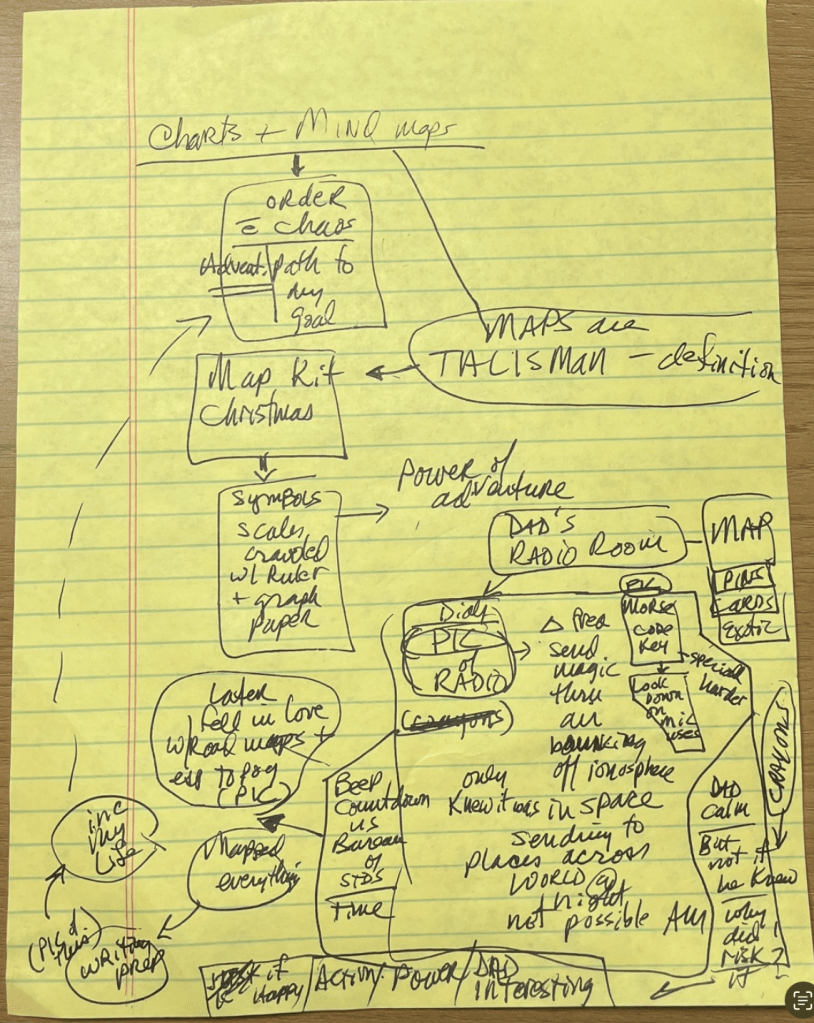 Charts + Mind maps
ORDER
c̄ chaos
path to
my
goal
MAPS are
TALISMAN – definition
Map Kit
Christmas
Symbols
scales,
w/ Ruler
+ graph
paper
Power of
adventure
DAD'S
RADIO ROOM
MAP
PINS
CARDS
Exotic
Dials
PIC
of
RADIO
(crayons)
Δ Freq
send
magic
thru
air
bouncing
off ionosphere
PIC
MORSE
code
Key
special
harder
Look
Down
on
mic
uses
CRAYONS
Later
Fell in Love
w/ Road maps +
(PIC)
Beep
Countdown
US
Bureau
of
STDS
Time
only
Knew it was in space
sending to
places across
WORLD @
night
not possible AM
DAD
calm
But
not if
he knew
why
did I
risk
it?
Mapped
everything
inc
my
Life
(PIC of
this)
writing
prep
if
Happy
Activ.
Power
DAD
Interesting